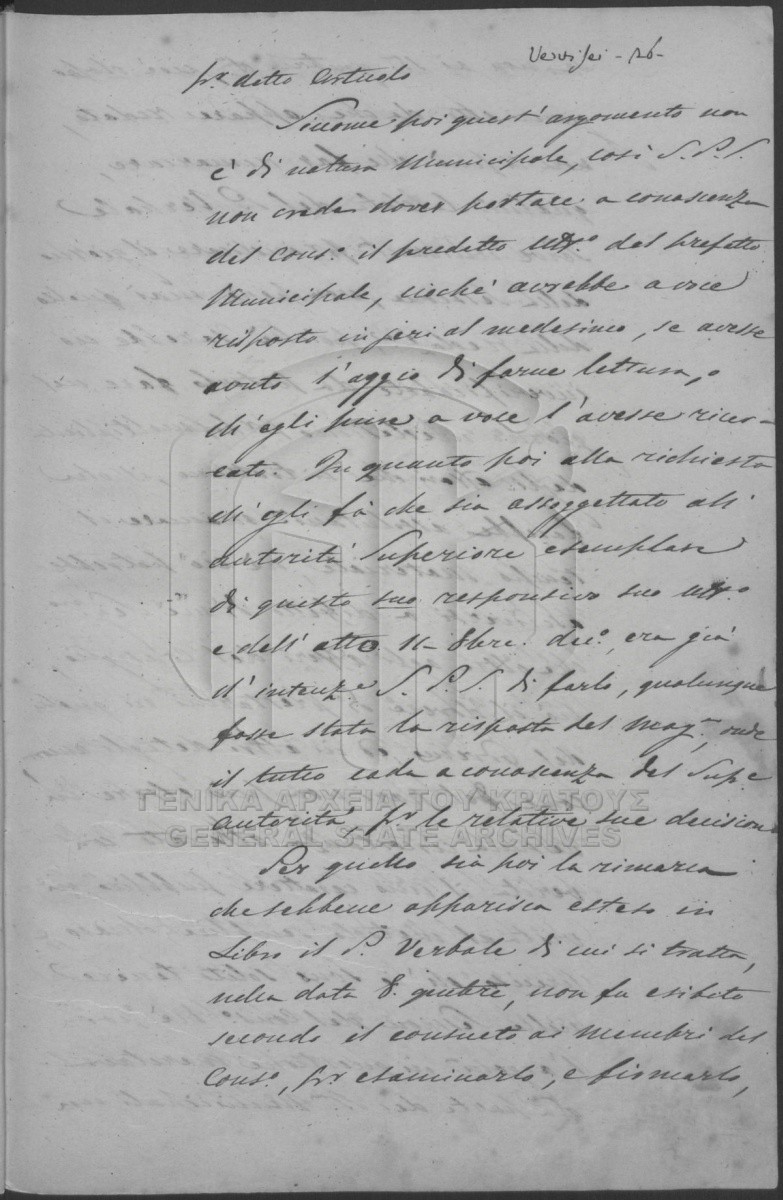 Ventisei - 26 -
pr. detto Articolo
Siccome poi quest' argomento non
è di natura Municipale, così S. P. S.
non crede dover portare a conoscenza
del Cons.o il predetto uff.o del prefetto
Municipale, ciochè avrebbe a voce
risposto in jeri al medesimo, se avesse
avuto l'aggio di farne lettura, o
ch'egli pure a voce l'avesse ricer-
cato. In quanto poi alla richiesta
ch'egli fà che sia assoggettato all'
autorità Superiore esemplare
di questo suo responsivo suo uff.o
e dell' atto 11 8bre. dec.o, era già
d'intenz.e S. P. S. di farlo, qualunque
fosse stata la risposta del mag.re, onde
il tutto cada a conoscenza del Sup.e
autorità, pr le relative sue decisioni
ΓΕΝΙΚΑ ΑΡΧΕΙΑ ΤΟΥ ΚΡΑΤΟΥΣ
GENERAL STATE ARCHIVES
Per quello sia poi la rimarca
che sebbene apparisca esteso in
Libro il P. Verbale di cui si tratta,
nella data 8. , non fu esibito
secondo il consueto ai membri del
Cons.o, pr esaminarlo, e firmarlo,